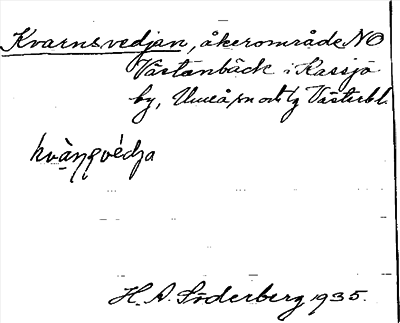 Kvarnsvedjan, åkerområde NO
Västanbäck i Kassjö
by, Umeå sn och tg Västerbl.
kvàṇṣvédja
H. A. Söderberg 1935.